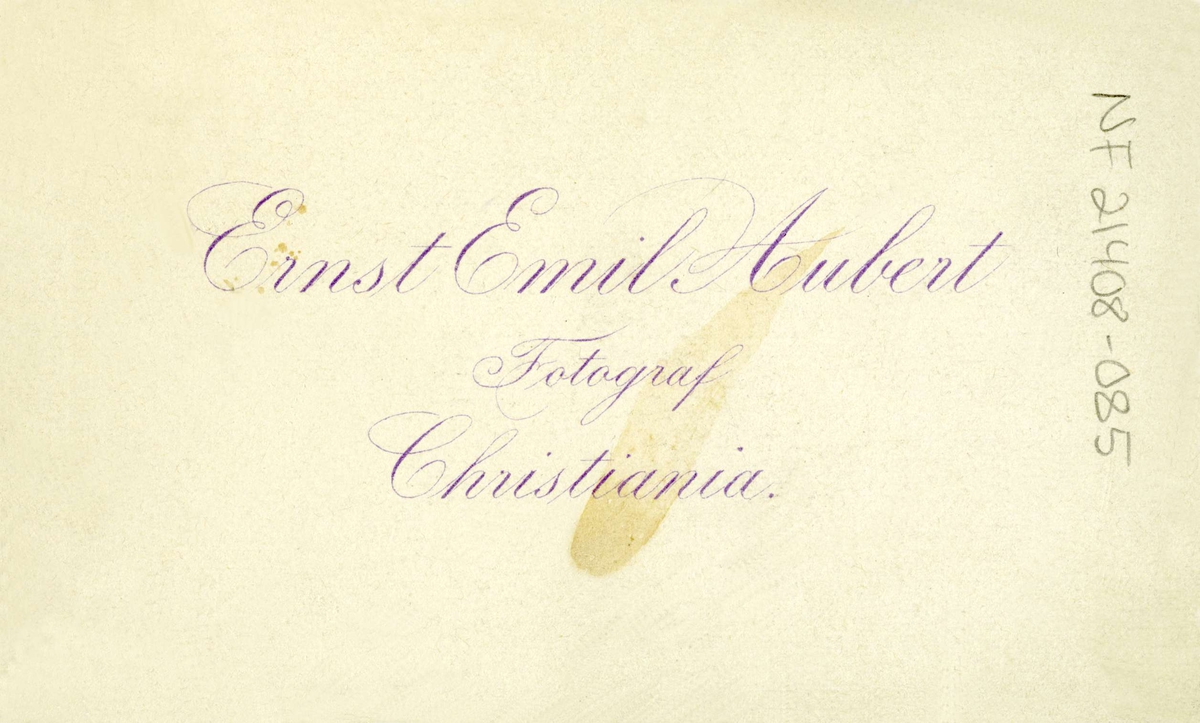 Ernst Emil Aubert
Fotograf
Christiania.
NF 21408-085